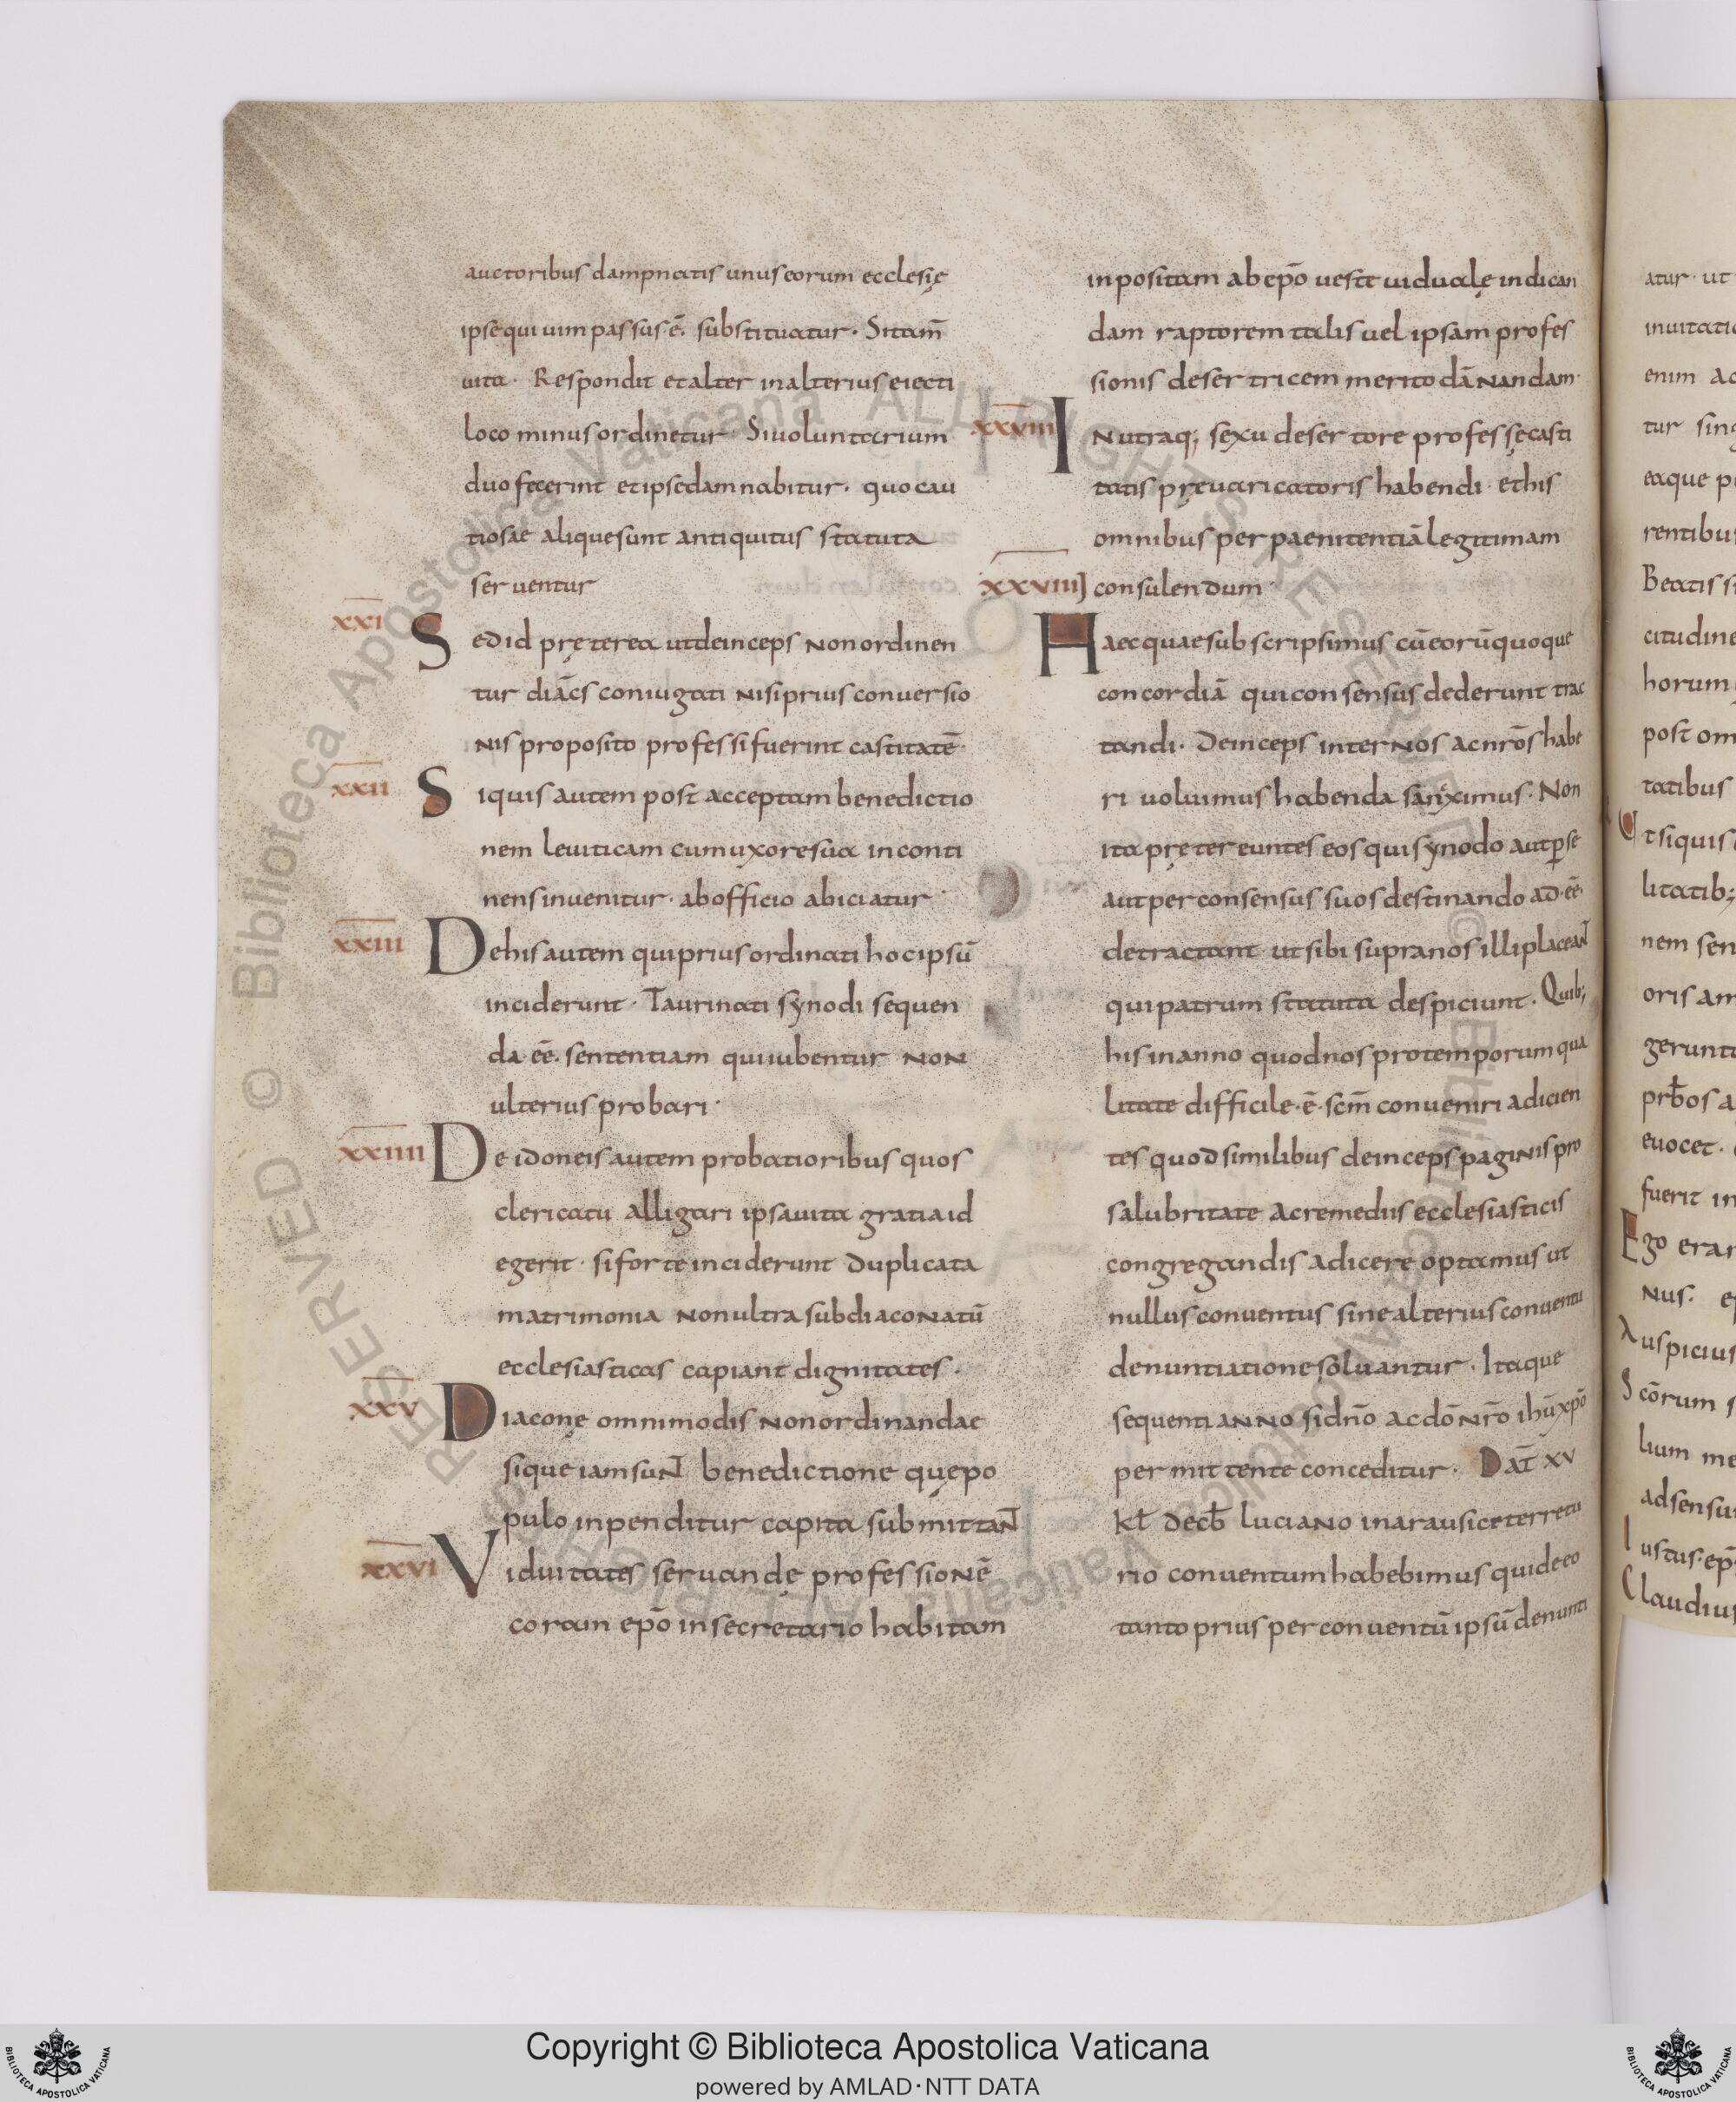 auctoribus dampnatis unus eorum ecclesię
ipse qui uim passus ē. substituatur. Sitam̄
uita. Respondit et alter in alterius eiecti
loco minus ordinetur. Si uoluntarium
duo fecerint et ipse damnabitur. quo cau
tiosae alique sunt antiquitus statuta
seruentur
XXI
Sed id pręterea ut deinceps non ordinen
tur diācs coniugati nisi prius conuersio
nis proposito professi fuerint castitatē
XXII
Si quis autem post acceptam benedictio
nem leuiticam cum uxore sua inconti
nens inuenitur. ab officio abiciatur
XXIII
De his autem qui prius ordinati hoc ipsū
inciderunt. Taurinati synodi sequen
da ēē. sententiam qui iubentur non
ulterius probari.
XXIIII
De idoneis autem probatioribus quos
clericatu alligari ipsa uita gratia id
egerit. si forte inciderunt duplicata
matrimonia non ultra subdiaconatū
ecclesiasticas capiant dignitates.
XXV
Diaconę omnimodis non ordinandae
si que iam sunt̄ benedictione quę po
pulo inpenditur capita submittant̄
XXVI
Viduitates seruandę professionē
coram ep̄o in secretario habitam
inpositam ab ep̄o ueste uidualę indican
dam raptorem talis uel ipsam profes
sionis desertricem merito dānandam.
XXVIII
In utraq; sexu desertore professę casti
tatis pręuaricatoris habendi. et his
omnibus per paenitentiā legitimam
XXVIIII
consulendum
Haec quae subscripsimus cū eorū quoque
concordiā qui consensus dederunt trac
tandi. Deinceps inter nos ac nr̄os habe
ri uoluimus habenda sanximus. Non
ita prętereuntes eos qui synodo aut ꝑ se
aut per consensus suos destinando ad ēē.
detractant ut sibi supra nos illi placeant̄
qui patrum statuta despiciunt. Quib;
his in anno quod nos pro temporum qua
litate difficile. ē. scm̄ conueniri adicien
tes quod similibus deinceps paginis pro
salubritate ac remediis ecclesiasticis
congregandis adicere optamus ut
nullus conuentus sine alterius conuentu
denuntiatione soluantur. Itaque
sequenti anno si dn̄o ac dō nr̄o ihū xp̄o
permittente conceditur. Dat̄ XV
Kł decb̄ luciano in arausice terretu
rio conuentum habebimus qui de eo
tanto prius per conuentū ipsū denunti
atur. ut
inuitatio
enim ac
tur sing
eaque p
rentibu
Beatis si
citudine
horum
post om
tatibus
Et si quis
litatib;
nem sen
oris am
gerunt
prb̄os a
euocet.
fuerit in
Ego erar
nus. ep
Auspicius
Scōrum s
lium me
adsensu
Iustus. ep̄
Claudius
Biblioteca Apostolica Vaticana ALL RIGHTS RESERVED ©
Copyright © Biblioteca Apostolica Vaticana
powered by AMLAD·NTT DATA
BIBLIOTECA APOSTOLICA VATICANA
BIBLIOTECA APOSTOLICA VATICANA